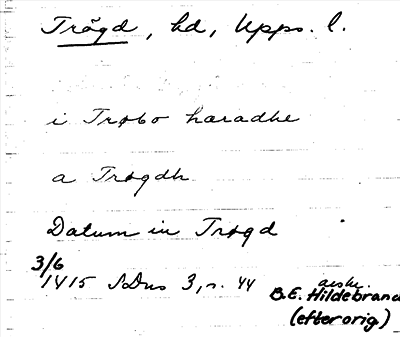 Trögd, hd, Upps. l.
i Trøbo haradhe
a Trøgdh
Datum in Trøgd
3/6
1415 SDns 3, n. 44
B.E. Hildebrand
(efter orig.)